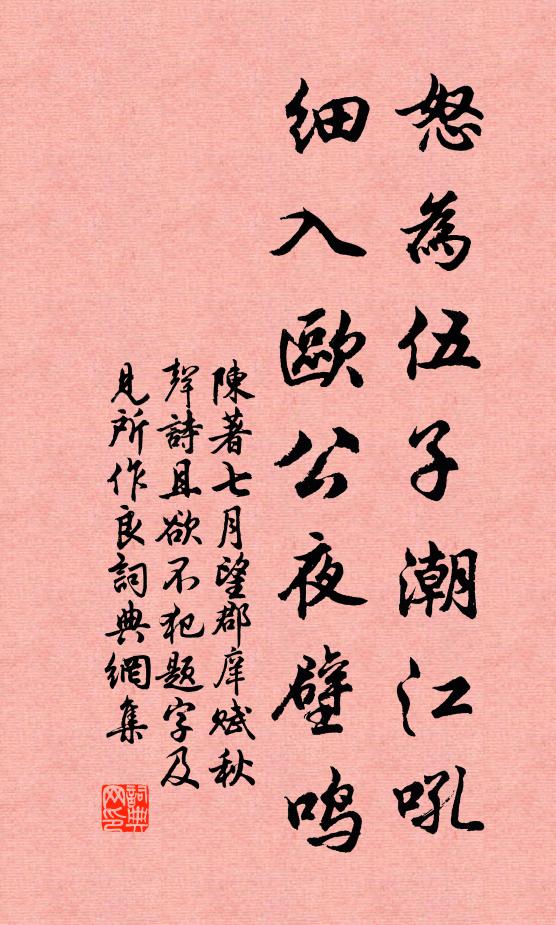 怒為伍子潮江吼
细入歐公夜壁鸣
陳著七月望郡庠赋秋
聲詩且欲不犯题字及
見所作良詞典網集
詞典网印